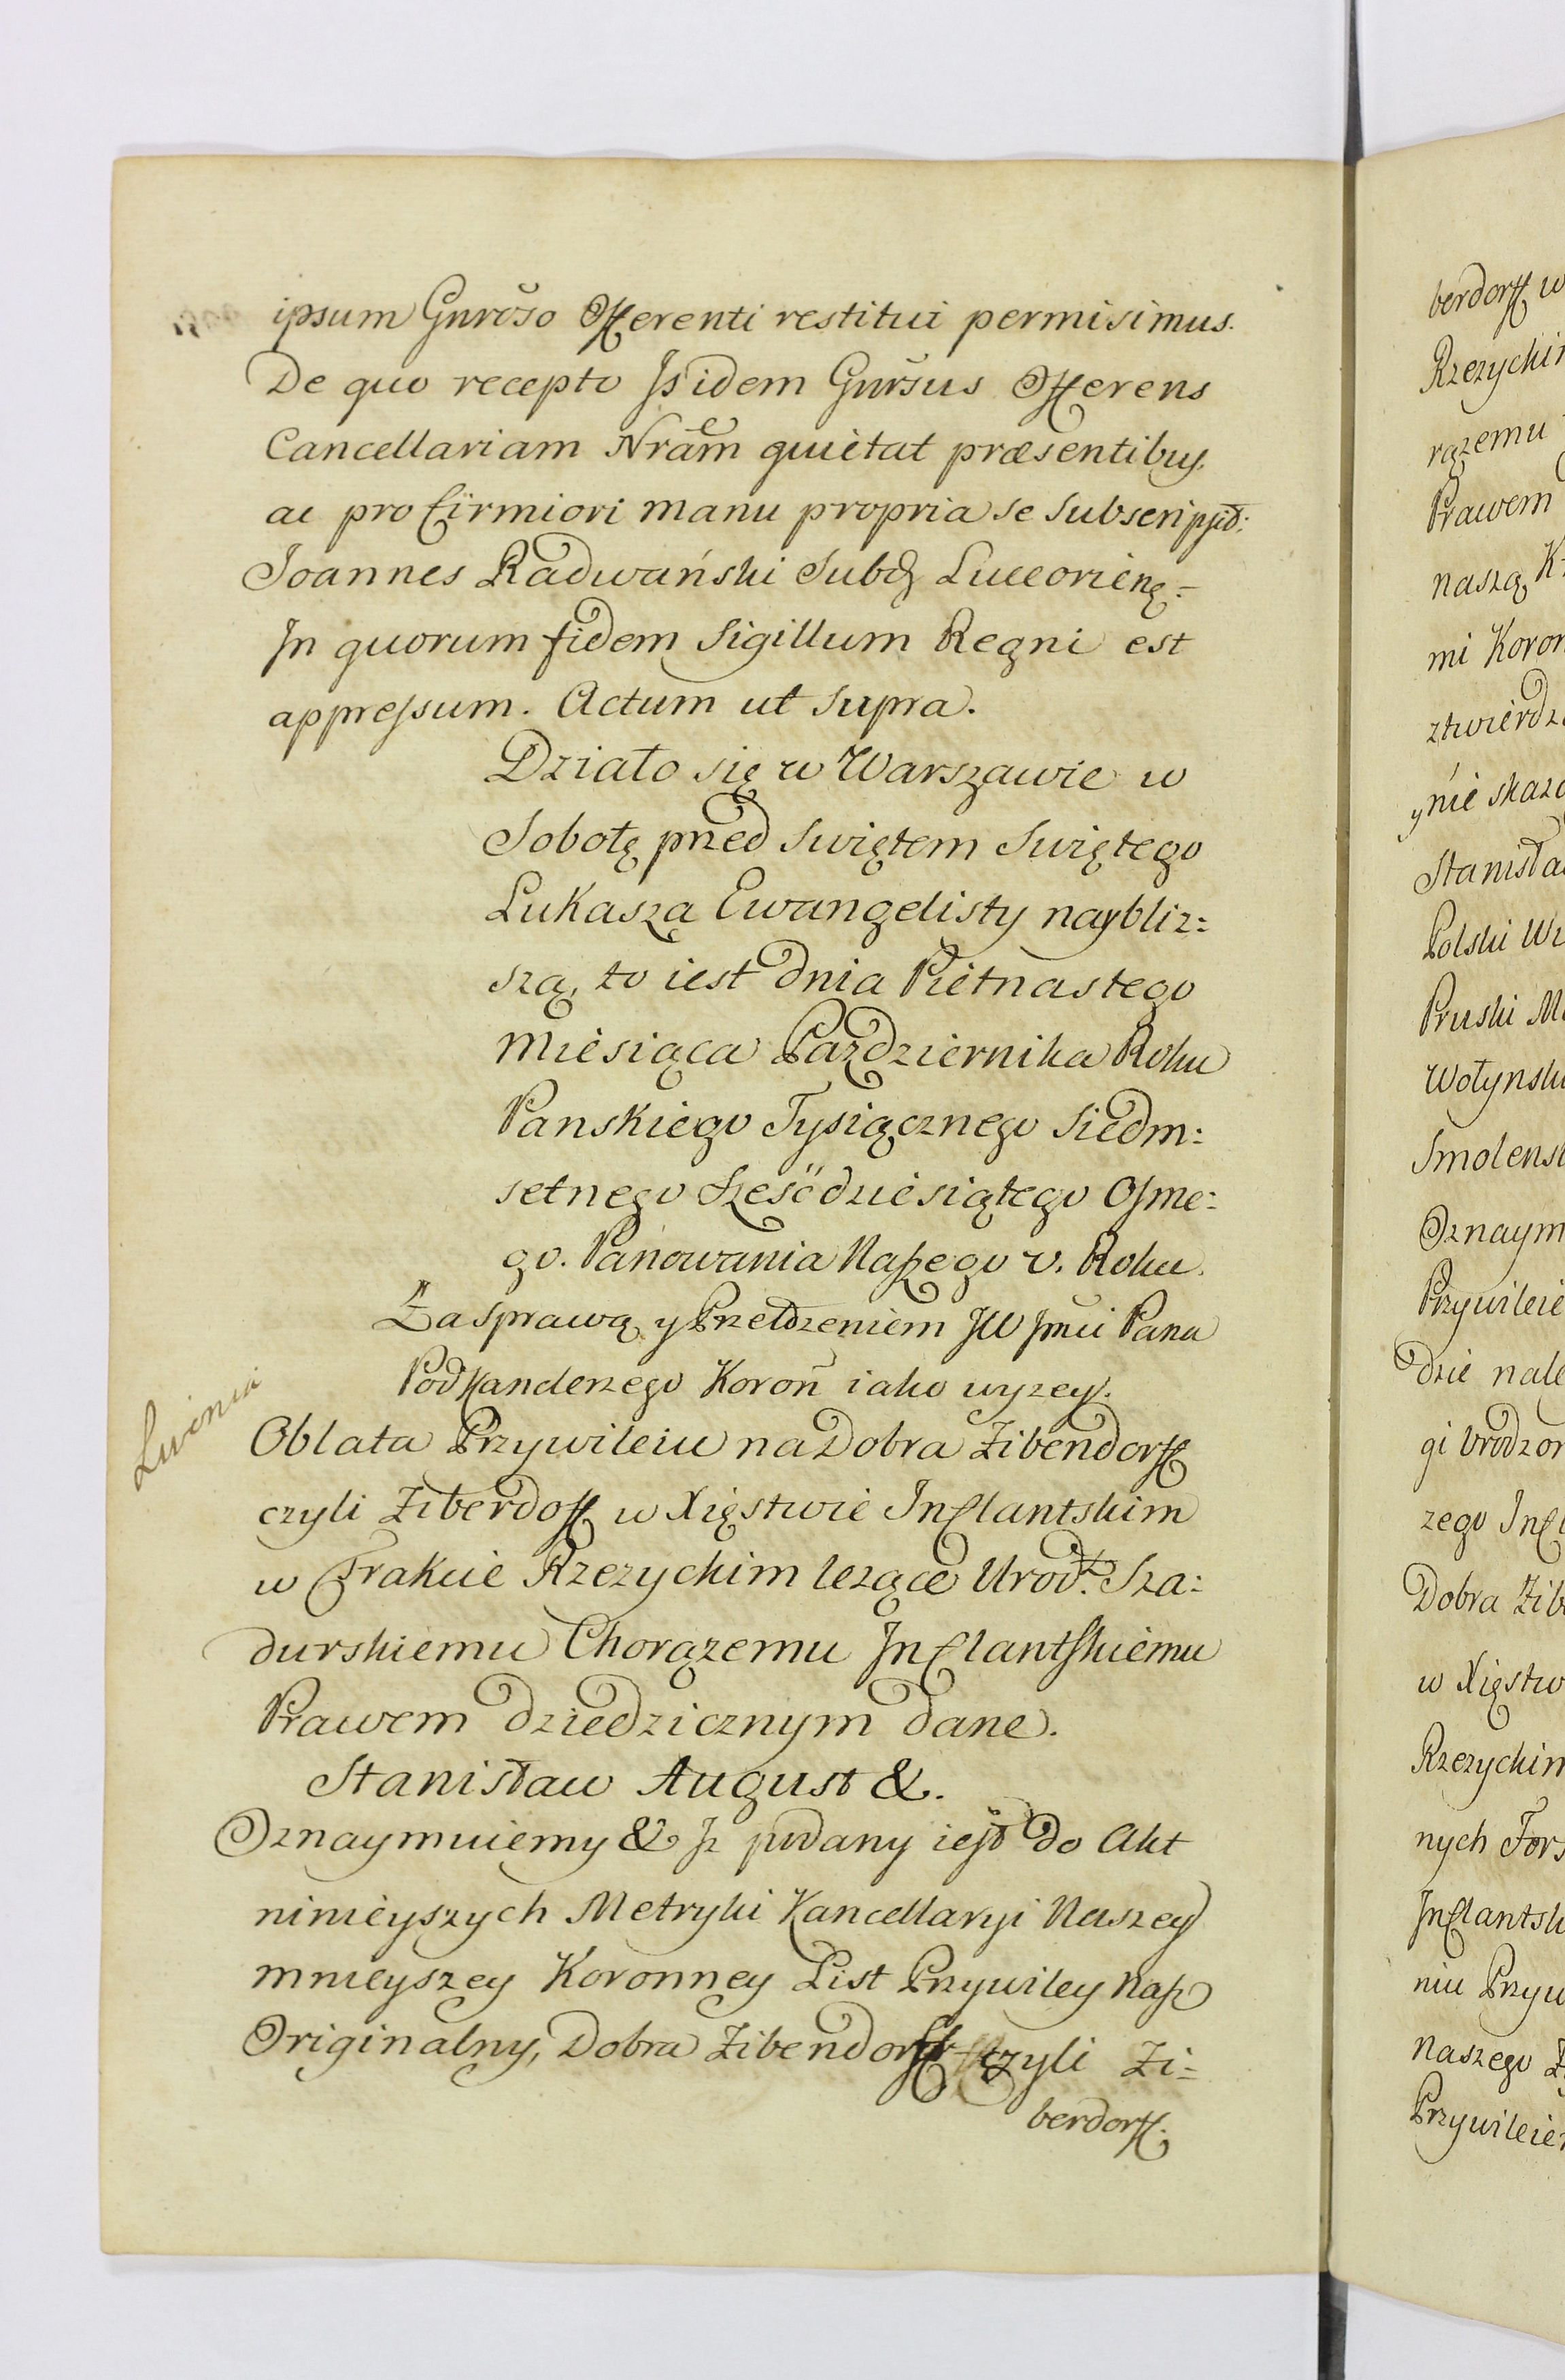 ipsum Gnroso Offerenti restitui permisimus.
De quo recepto Isidem Gnrsus Offerens
Cancellariam Nram quietat præsentibus.
ac pro firmiori manu propria se subscripsit:
Joannes Radwański Subd Luceorien:
In quorum fidem Sigillum Regni est
appressum. Actum ut supra.
Działo się w Warszawie w
Sobotę przed Swiętem Swiętego
Lukasza Ewangelisty naybliz:
szą, to iest dnia Pietnastego
Miesiąca Pazdziernika Roku
Panskiego Tysiącznego Siedm:
setnego Sześćdziesiątego Osme:
go. Panowania Naszego v. Roku.
Za sprawą y Przełdzeniem JW Jmci Pana
Podkanclerzego Koron iako wyzey.
Livonia
Oblata Przywileiu na Dobra Zibendorff
czyli Ziberdoff w Xięstwie Inflantskim
w Trakcie Rzezychim lezące Urodz. Sza:
durskiemu Chorązemu Inflantskiemu
Prawem dziedzicznym dane.
Stanisław August &.
Oznaymuiemy & Jz podany iest do Akt
ninieyszych Metryki Kancellaryi Naszey
mnieyszey Koronney List Przywiley Nasz
Originalny, Dobra Zibendorff czyli Zi:
berdorff.
berdorff w
Rzezychim
rązemu
Prawem
naszą
mi Koron
ztwierdz
y nie skaz
Stanisła
Polski W
Pruski M
Wołynsk
Smolensk
Oznaym
Przywileie
dzie nale
gi Urodzon
zego Infl
Dobra Zib
w Xięstw
Rzezychim
nych Fors
Inflantsk
niu Przyw
naszego Z
Przywileie